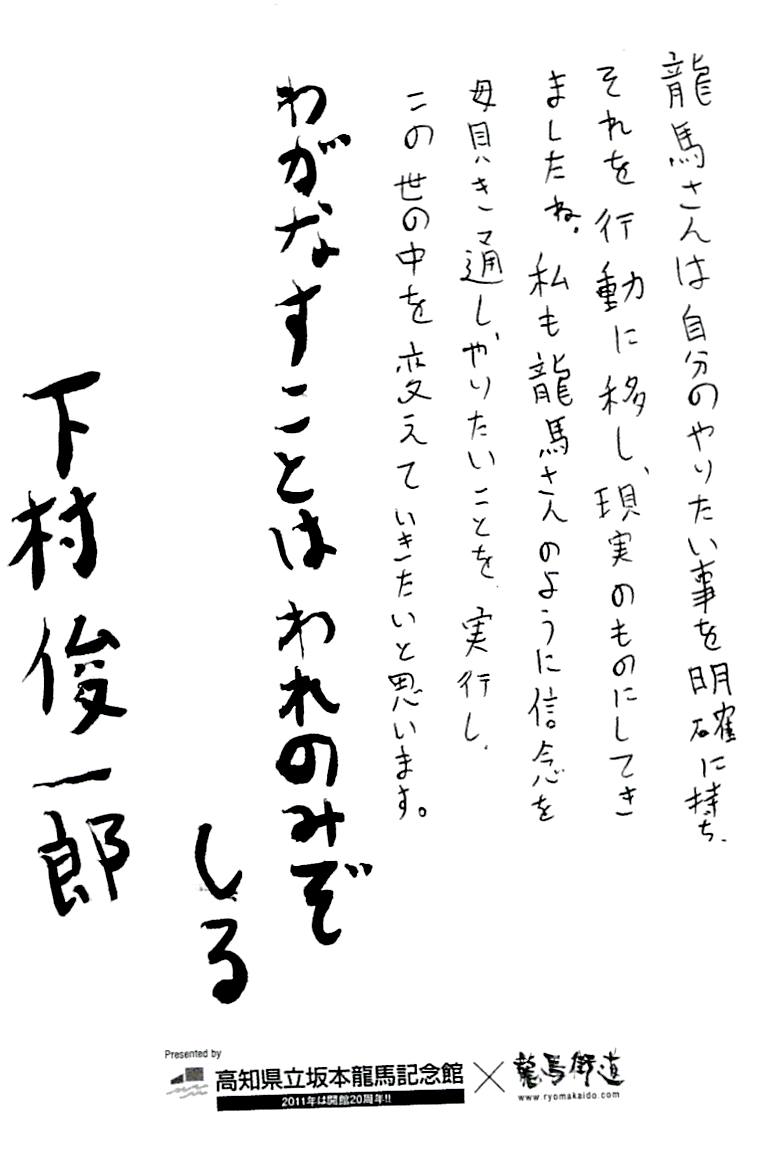 龍馬さんは自分のやりたい事を明確に持ち、
それを行動に移し、現実のものにしてき
ましたね。私も龍馬さんのように信念を
貫き通しやりたいことを実行し、
この世の中を変えていきたいと思います。
わがなすことは われのみぞ
しる
下村俊一郎
Presented by
高知県立坂本龍馬記念館
2011年は開館20周年!!
×
龍馬街道
www.ryomakaido.com